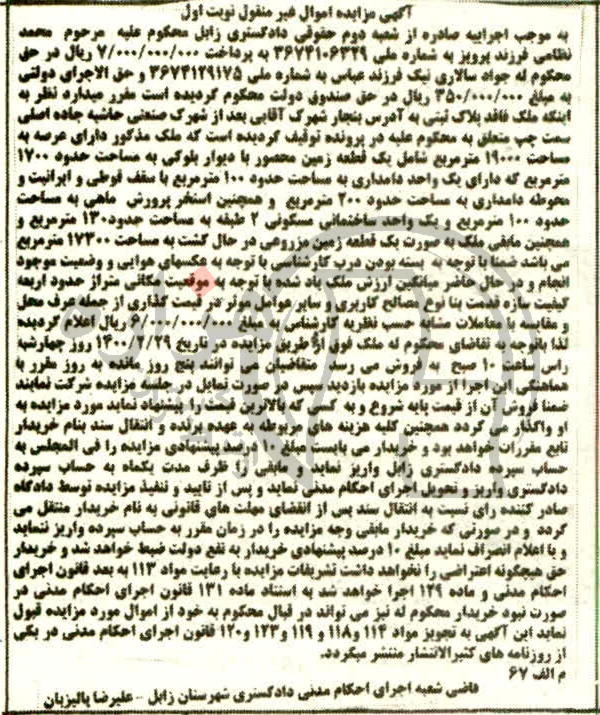 آگهی مزایده اموال غیر منقول نوبت اول
به موجب اجراییه صادره از شعبه دوم حقوقی دادگستری زابل محکوم علیه مرحوم محمد
نظامی فرزند پرویز به شماره ملی ۳۶۷۴۱۰۶۳۲۹ به پرداخت ۷/۰۰۰/۰۰۰/۰۰۰ ریال در حق
محکوم له جواد سالاری نیک فرزند عباس به شماره ملی ۳۶۷۴۱۲۹۱۷۵ و حق الاجرای دولتی
به مبلغ ۳۵۰/۰۰۰/۰۰۰ ریال در حق صندوق دولت محکوم گردیده است مقرر میدارد نظر به
اینکه ملک فاقد پلاک ثبتی به آدرس بنجار شهرک آقایی بعد از شهرک صنعتی حاشیه جاده اصلی
سمت چپ متعلق به محکوم علیه در پرونده توقیف گردیده است که ملک مذکور دارای عرصه به
مساحت ۱۹۰۰۰ مترمربع شامل یک قطعه زمین محصور با دیوار بلوکی به مساحت حدود ۱۷۰۰
مترمربع که دارای یک واحد دامداری به مساحت حدود ۱۰۰ مترمربع با سقف قوطی و ایرانیت و
محوطه دامداری به مساحت حدود ۲۰۰ مترمربع و همچنین استخر پرورش ماهی به مساحت
حدود ۱۰۰ مترمربع و یک واحد ساختمانی مسکونی ۲ طبقه به مساحت حدود۱۳۰ مترمربع و
همچنین مابقی ملک به صورت یک قطعه زمین مزروعی در حال کشت به مساحت ۱۷۳۰۰ مترمربع
می باشد ضمنا با توجه به بسته بودن درب کارشناسی با توجه به عکسهای هوایی و وضعیت موجود
انجام و در حال حاضر میانگین ارزش ملک یاد شده با توجه به موقعیت مکانی متراژ حدود اربعه
کیفیت سازه قدمت بنا نوع مصالح کاربری و سایر عوامل موثر در قیمت گذاری از جمله عرف محل
و مقایسه با معاملات مشابه حسب نظریه کارشناس به مبلغ ۶/۰۰۰/۰۰۰/۰۰۰ ریال اعلام گردیده
لذا باتوجه به تقاضای محکوم له ملک فوق از طریق مزایده در تاریخ ۱۴۰۰/۲/۲۹ روز چهارشنبه
راس ساعت ۱۰ صبح به فروش می رسد متقاضیان می توانند پنج روز مانده به روز مقرر با
هماهنگی این اجرا از مورد مزایده بازدید سپس در صورت تمایل در جلسه مزایده شرکت نمایند
ضمنا فروش آن از قیمت پایه شروع و به کسی که بالاترین قیمت را پیشنهاد نماید مورد مزایده به
او واگذار می گردد همچنین کلیه هزینه های مربوطه به عهده برنده و انتقال سند بنام خریدار
تابع مقررات خواهد بود و خریدار می بایست مبلغ ۱۰ درصد پیشنهادی مزایده را فی المجلس به
حساب سپرده دادگستری زابل واریز نماید و مابقی را ظرف مدت یکماه به حساب سپرده
دادگستری واریز و تحویل اجرای احکام مدنی نماید و پس از تایید و تنفیذ مزایده توسط دادگاه
صادر کننده رای نسبت به انتقال سند پس از انقضای مهلت های قانونی به نام خریدار منتقل می
گردد و در صورتی که خریدار مابقی وجه مزایده را در زمان مقرر به حساب سپرده واریز ننماید
و یا اعلام انصراف نماید مبلغ ۱۰ درصد پیشنهادی خریدار به نفع دولت ضبط خواهد شد و خریدار
حق هیچگونه اعتراضی را نخواهد داشت تشریفات مزایده با رعایت مواد ۱۱۳ به بعد قانون اجرای
احکام مدنی و ماده ۱۲۹ اجرا خواهد شد به استناد ماده ۱۳۱ قانون اجرای احکام مدنی در
صورت نبود خریدار محکوم له نیز می تواند در قبال محکوم به خود از اموال مورد مزایده قبول
نماید این آگهی به تجویز مواد ۱۱۴ و۱۱۸ و ۱۱۹ و۱۲۳ و۱۲۰ قانون اجرای احکام مدنی در یکی
از روزنامه های کثیرالانتشار منتشر میگردد.
م الف ۶۷
قاضی شعبه اجرای احکام مدنی دادگستری شهرستان زابل - علیرضا پالیزبان